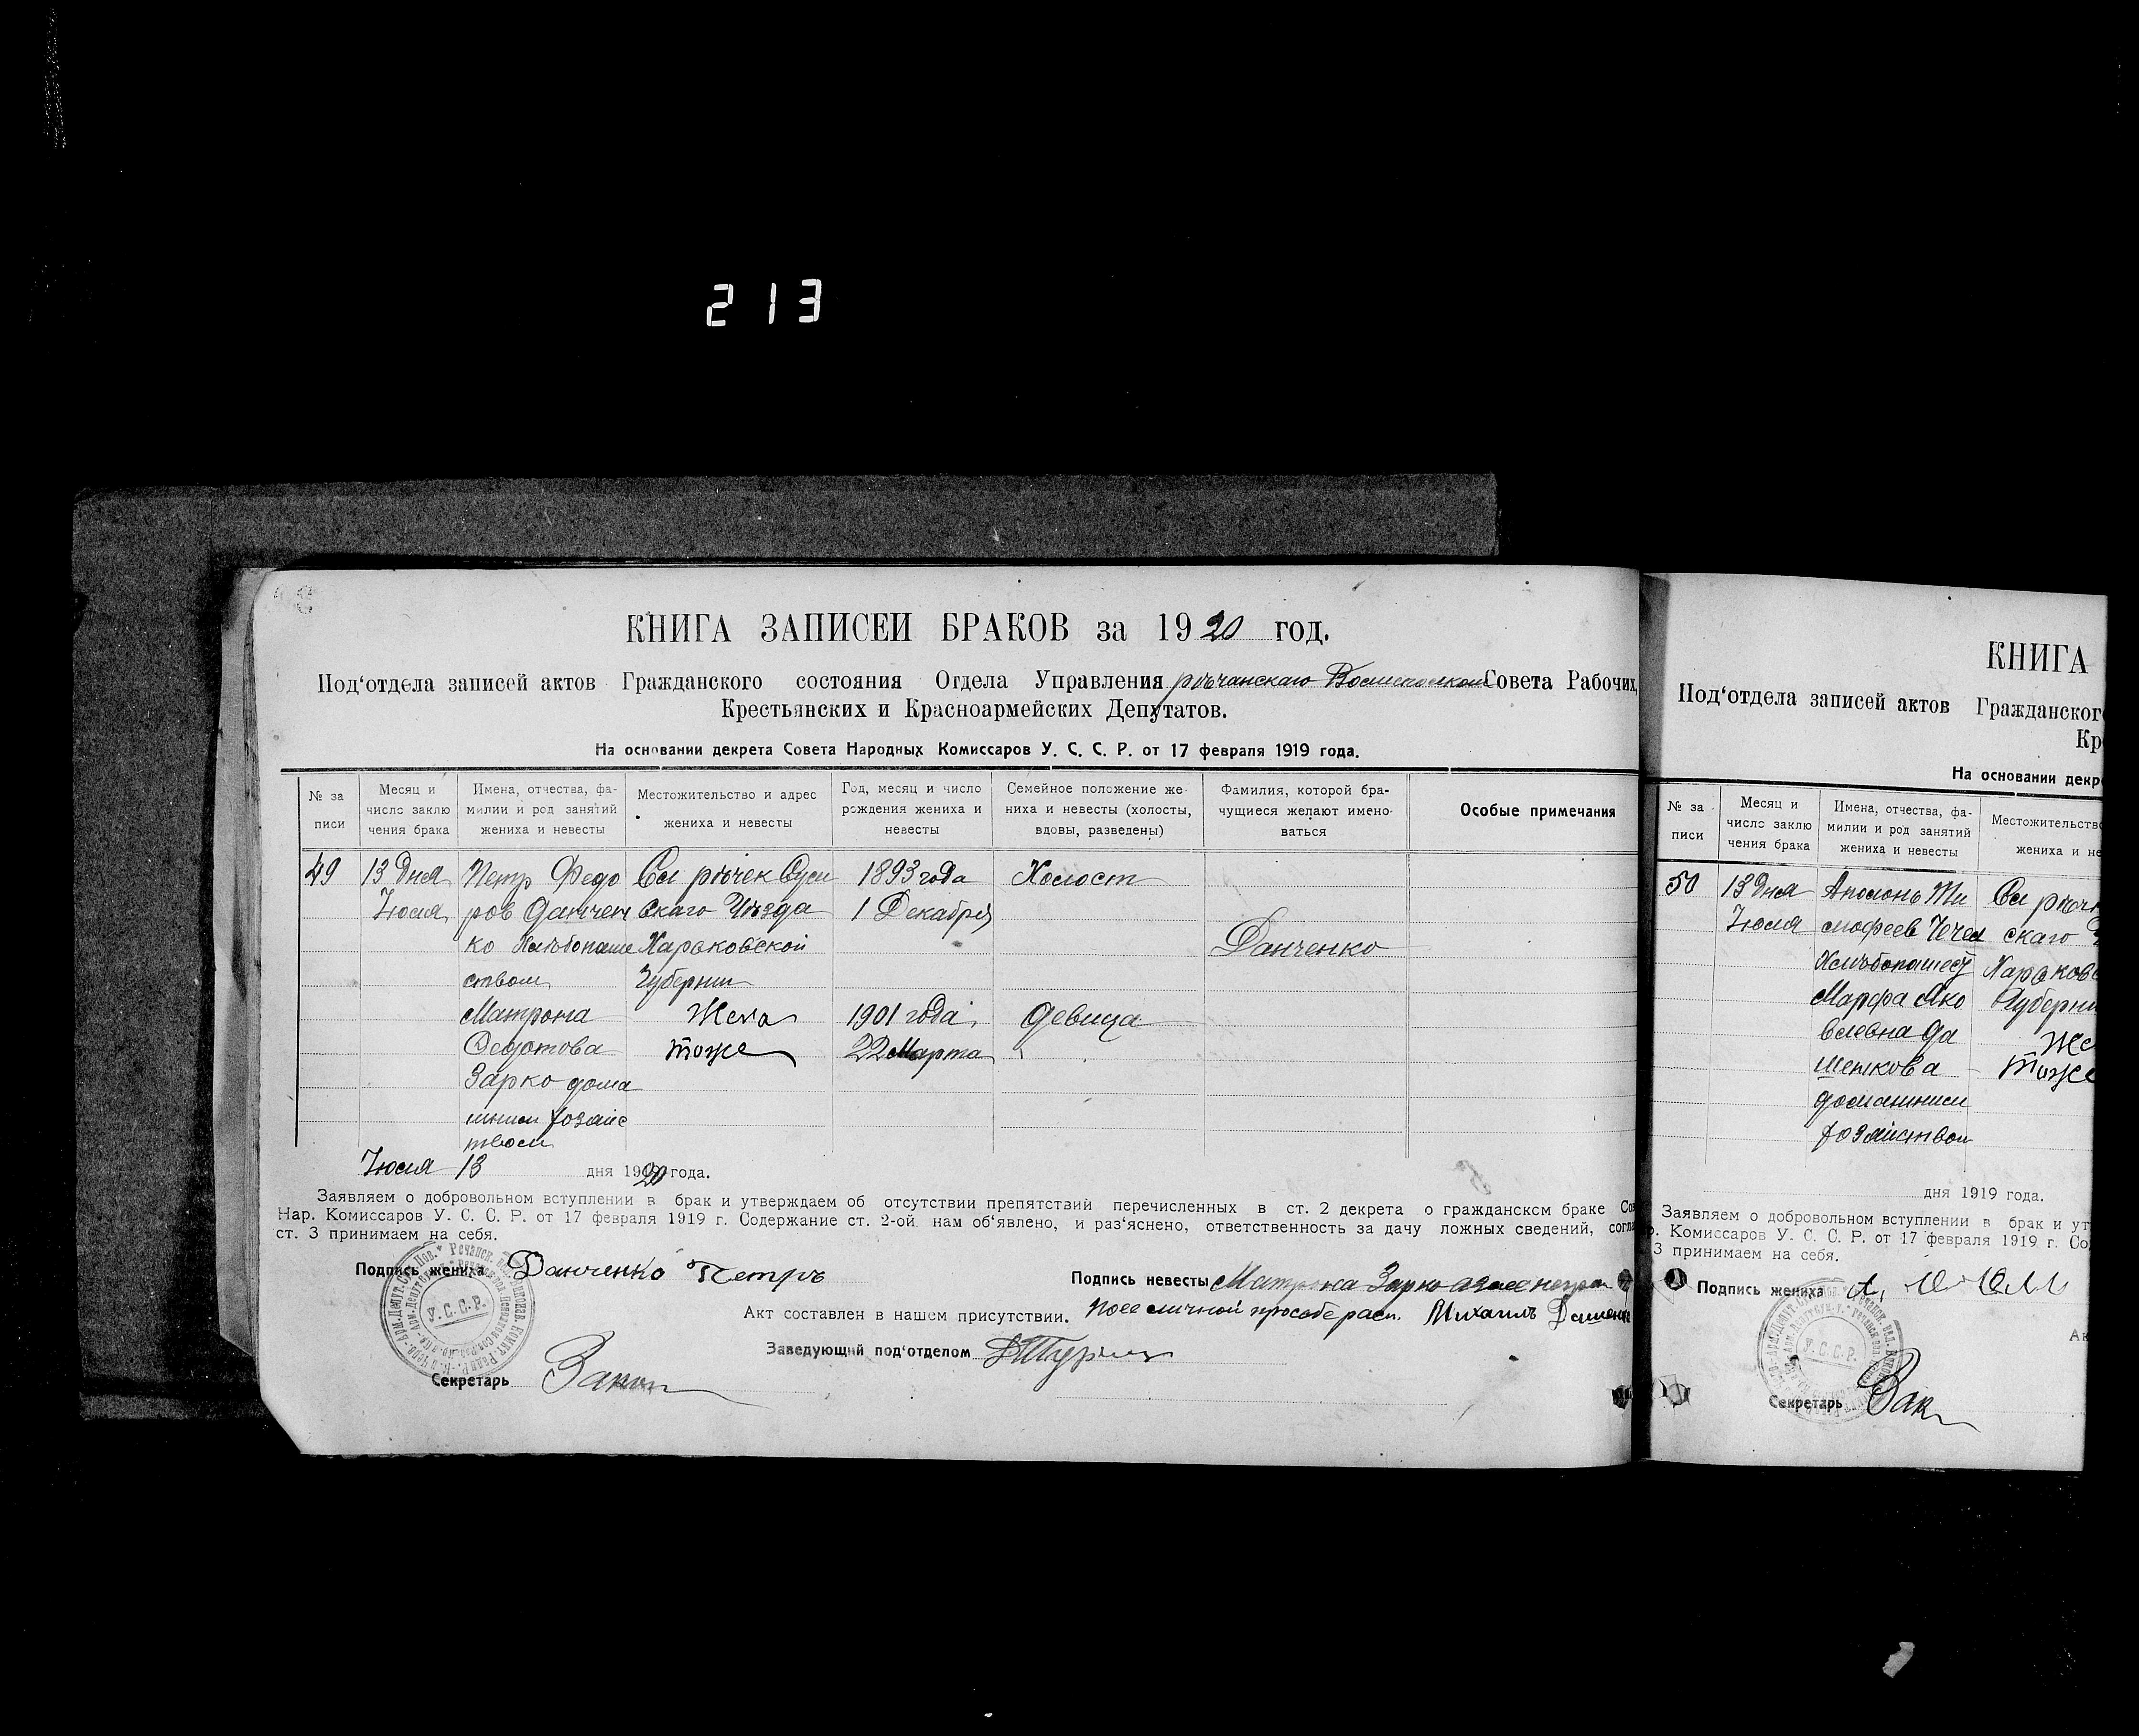 213
КНИГА ЗАПИСЕЙ БРАКОВ за 1920 год.
Под‘отдела записей актов Гражданского состояния Отдела Управления рѣчанскаго Совета Рабочих,
Крестьянских и Красноармейских Депутатов.
На основании декрета Совета Народных Комиссаров У. С. С. Р. от 17 февраля 1919 года.
№ за
писи
Месяц и
число заклю
чения брака
Имена, отчества, фа-
милии и род занятий
жениха и невесты
Местожительство и адрес
жениха и невесты
Год, месяц и число
рождения жениха и
невесты
Семейное положение же-
ниха и невесты (холосты,
вдовы, разведены)
Фамилия, которой бра-
чущиеся желают имено-
ваться
Особые примечания
49
13 Дня
Июля
Петр Федо
ров Данчен
ко Хлѣбопаше
ством
Матрона
Федотова
Зарко дома
шним хозаис
твом
Сл рѣчек Сум
скаго Уѣзда
Харьковской
Губернии
Жена
тоже
1893 года
1 Декабря
1901 года
22 Марта
Холост
девица
Данченко
Июля 13 дня 1920 года.
Заявляем о добровольном вступлении в брак и утверждаем об отсутствии препятствий перечисленных в ст. 2 декрета о гражданском браке Сов
Нар. Комиссаров У. С. С. Р. от 17 февраля 1919 г. Содержание ст. 2-ой нам об‘явлено, и раз‘яснено, ответственность за дачу ложных сведений, согла
ст. 3 принимаем на себя.
Подпись жениха Данченко Петръ
Подпись невесты Матрона Зарко
Акт составлен в нашем присутствии. по ее личной прозбе расп. Михаилъ
Заведующий под‘отделом
Секретарь
У.С.С.Р.
КНИГА
Под‘отдела записей актов Гражданског
Кр
На основании декр
№ за
писи
Месяц и
число заклю
чения брака
Имена, отчества, фа-
милии и род занятий
жениха и невесты
Местожительство
жениха и не
50
13 Дня
Июля
Аполонъ Ти
мофеев Чечел
Хлѣбопашест
Марфа Яко
влевна Да
шенкова
домашним
хозяйством
Сл рѣчк
скаго
Харьковс
Губерни
Же
тоже
дня 1919 года.
Заявляем о добровольном вступлении в брак и ут
р. Комиссаров У. С. С. Р. от 17 февраля 1919 г. Со
3 принимаем на себя.
Подпись жениха
Ак
У.С.С.Р.
Секретарь